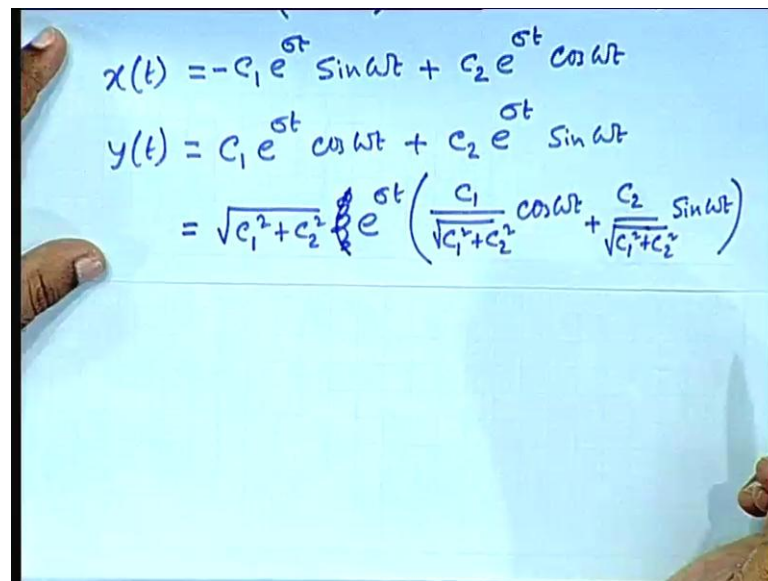 x(t) = -C₁ e^σt Sin ωt + C₂ e^σt cos ωt
y(t) = C₁ e^σt cos ωt + C₂ e^σt Sin ωt
= √(C₁² + C₂²) e^σt ( C₁/√(C₁²+C₂²) cos ωt + C₂/√(C₁²+C₂²) Sin ωt )